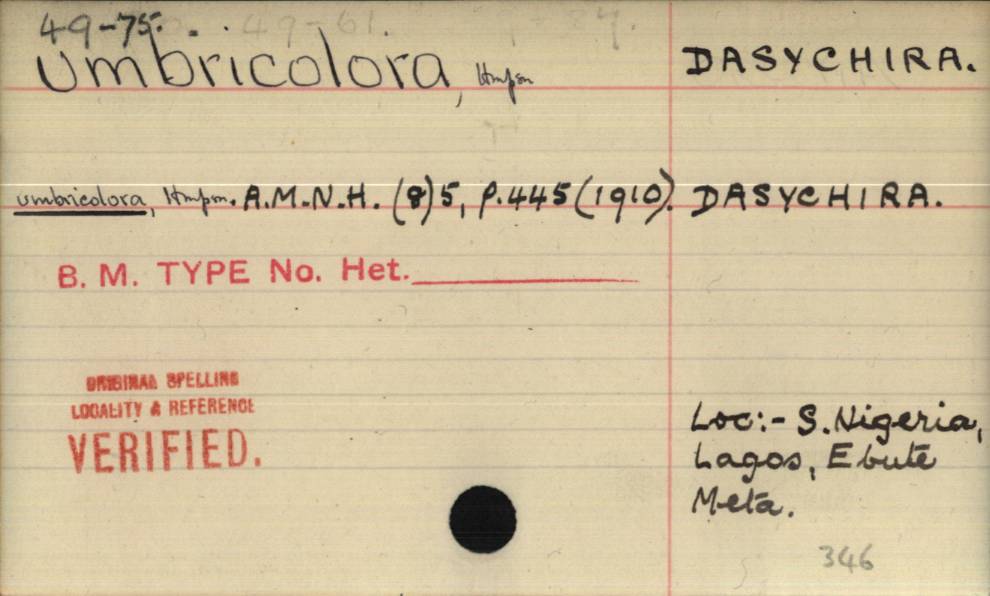 49-75. 49-61.
umbricolora, Hmpsn DASYCHIRA.
umbricolora, Hmpsn. A.M.N.H. (8)5, p.445 (1910). DASYCHIRA.
B. M. TYPE No. Het.
ORIGINAL SPELLING
LOCALITY & REFERENCE
VERIFIED.
Loc:- S. Nigeria,
Lagos, Ebute
Meta.
346